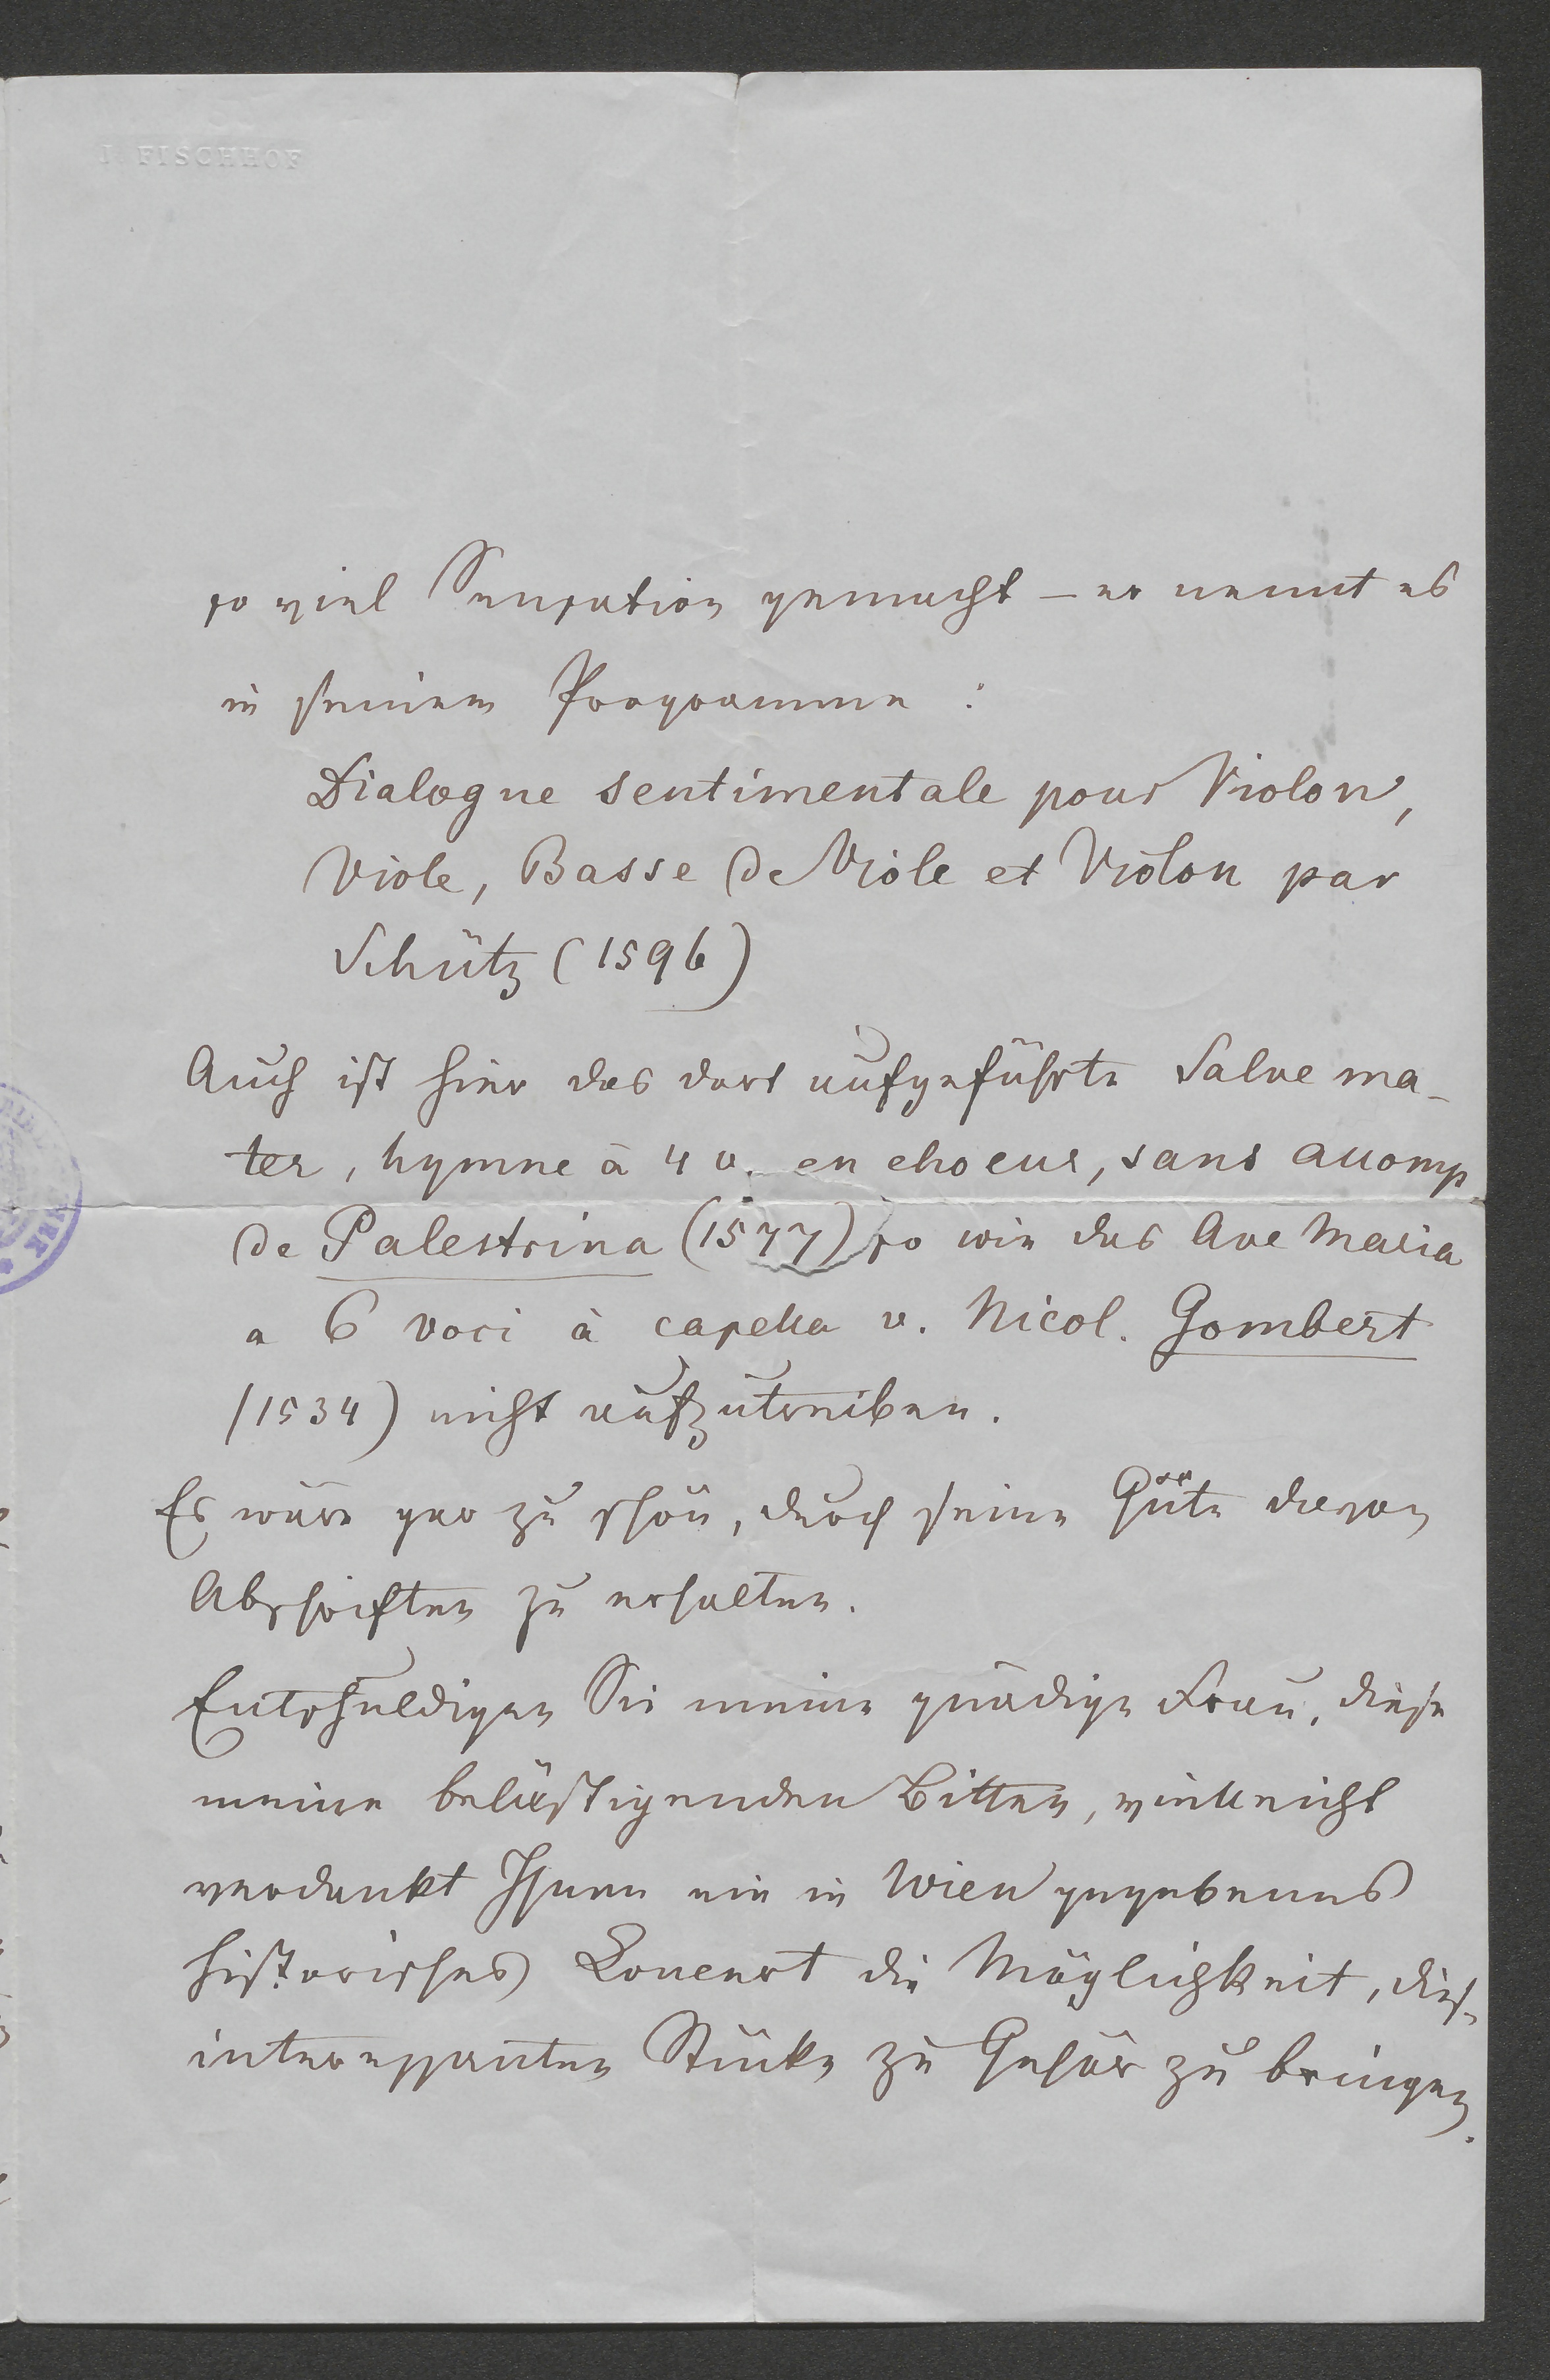 I. FISCHHOF
so viel Sensation gemacht – er nennt es
in seinem Programme :
Dialogue sentimentale pour Violon,
Viole, Basse de Viole et Violon par
Schütz (1596)
Auch ist hier das dort aufgeführte Salve ma-
ter, hymne à 4 v. en choeur, sans accomp
de Palestrina (1577) so wie das Ave Maria
a 6 voci à capella v. Nicol. Gombert
(1534) nicht aufzutreiben.
Es wäre gar zu schön, durch seine Güte davon
Abschriften zu erhalten.
Entschuldigen Sie meine gnädige Frau, diese
meine belästigenden Bitten, vielleicht
verdankt Ihnen ein in Wien gegebenes
historisches Concert die Möglichkeit, diese
interessanten Stücke zu Gehör zu bringen.